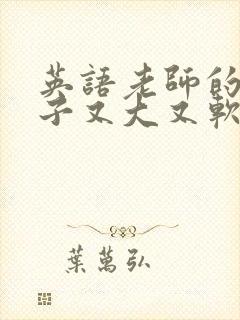 英語老師的
子又大又軟
葉萬弘